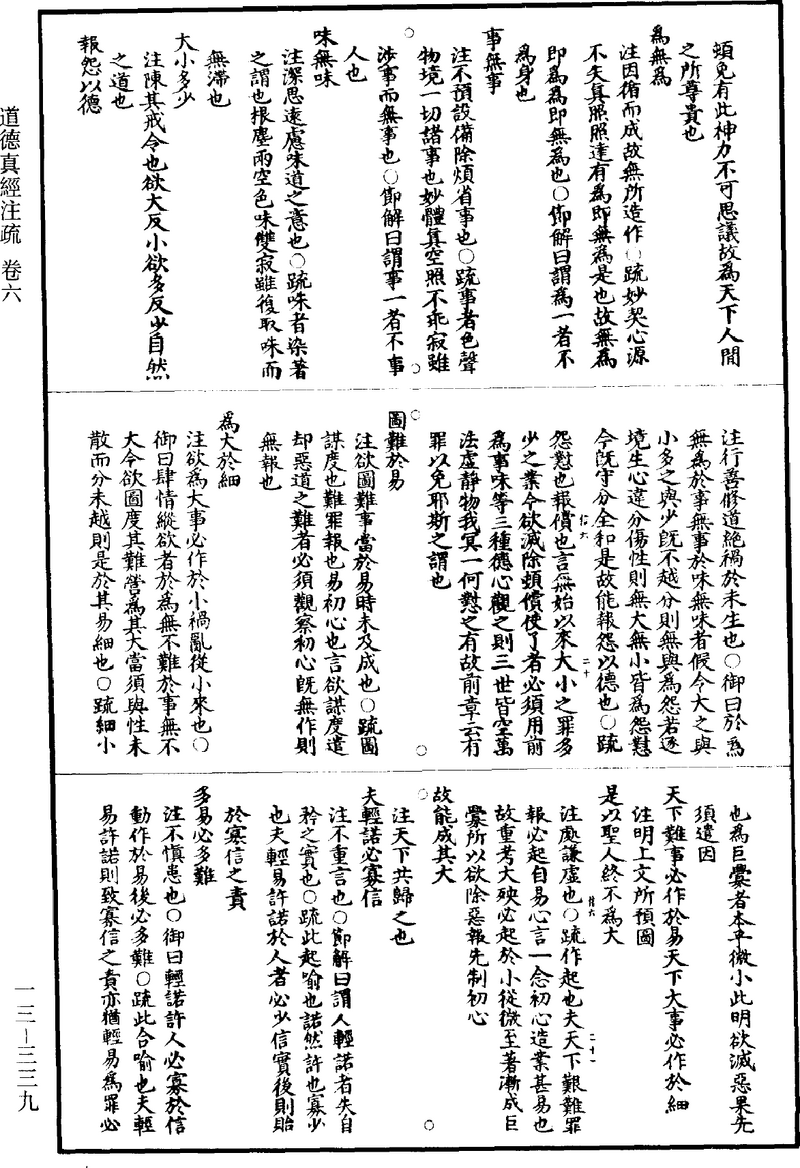 道德真經注疏 卷六
頭免有此神力不可思議故為天下人間
之所尊貴也
為無為
注因循而成故無所造作○疏妙契心源
不失真照照達有為即無為是也故無為
即為為即無為也○節解曰謂為一者不
為身也
事無事
注不預設備除煩省事也○疏事者色聲
物境一切諸事也妙體真空照不乖寂雖
涉事而無事也○節解曰謂事一者不事
人也
味無味
注深思遠慮味道之意也○疏味者染著
之謂也根塵兩空色味雙寂雖復取味而
無滯也
大小多少
注陳其戒令也欲大反小欲多反少自然
之道也
報怨以德
注行善修道絕禍於未生也○御曰於為
無為於事無事於味無味者假令大之與
小多之與少既不越分則無與為怨若逐
境生心違分傷性則無大無小皆為怨懟
今既守分全和是故能報怨以德也○疏
怨懟也報償也言無始以來大小之罪多
少之業今欲滅除頓償使了者必須用前
為事味等三種德心觀之則三世皆空萬
法虛靜物我冥一何懟之有故前章云有
罪以免耶斯之謂也
圖難於易
注欲圖難事當於易時未及成也○疏圖
謀度也難罪報也易初心也言欲謀度遣
却惡道之難者必須觀察初心既無作則
無報也
為大於細
注欲為大事必作於小禍亂從小來也○
御曰肆情縱欲者於為無不難於事無不
大今欲圖度其難營為其大當須與性未
散而分未越則是於其易細也○疏細小
也為巨舋者本乎微小此明欲滅惡果先
須遣因
天下難事必作於易天下大事必作於細
注明上文所預圖
是以聖人終不為大
注處謙虛也○疏作起也夫天下艱難罪
報必起自易心言一念初心造業甚易也
故重考大殃必起於小從微至著漸成巨
舋所以欲除惡報先制初心
故能成其大
注天下共歸之也
夫輕諾必寡信
注不重言也○節解曰謂人輕諾者失自
矜之實也○疏此起喻也諾然許也寡少
也夫輕易許諾於人者必少信實後則貽
於寡信之責
多易必多難
注不慎患也○御曰輕諾許人必寡於信
動作於易後必多難○疏此合喻也夫輕
易許諾則致寡信之責亦猶輕易為罪必
一三—三三九